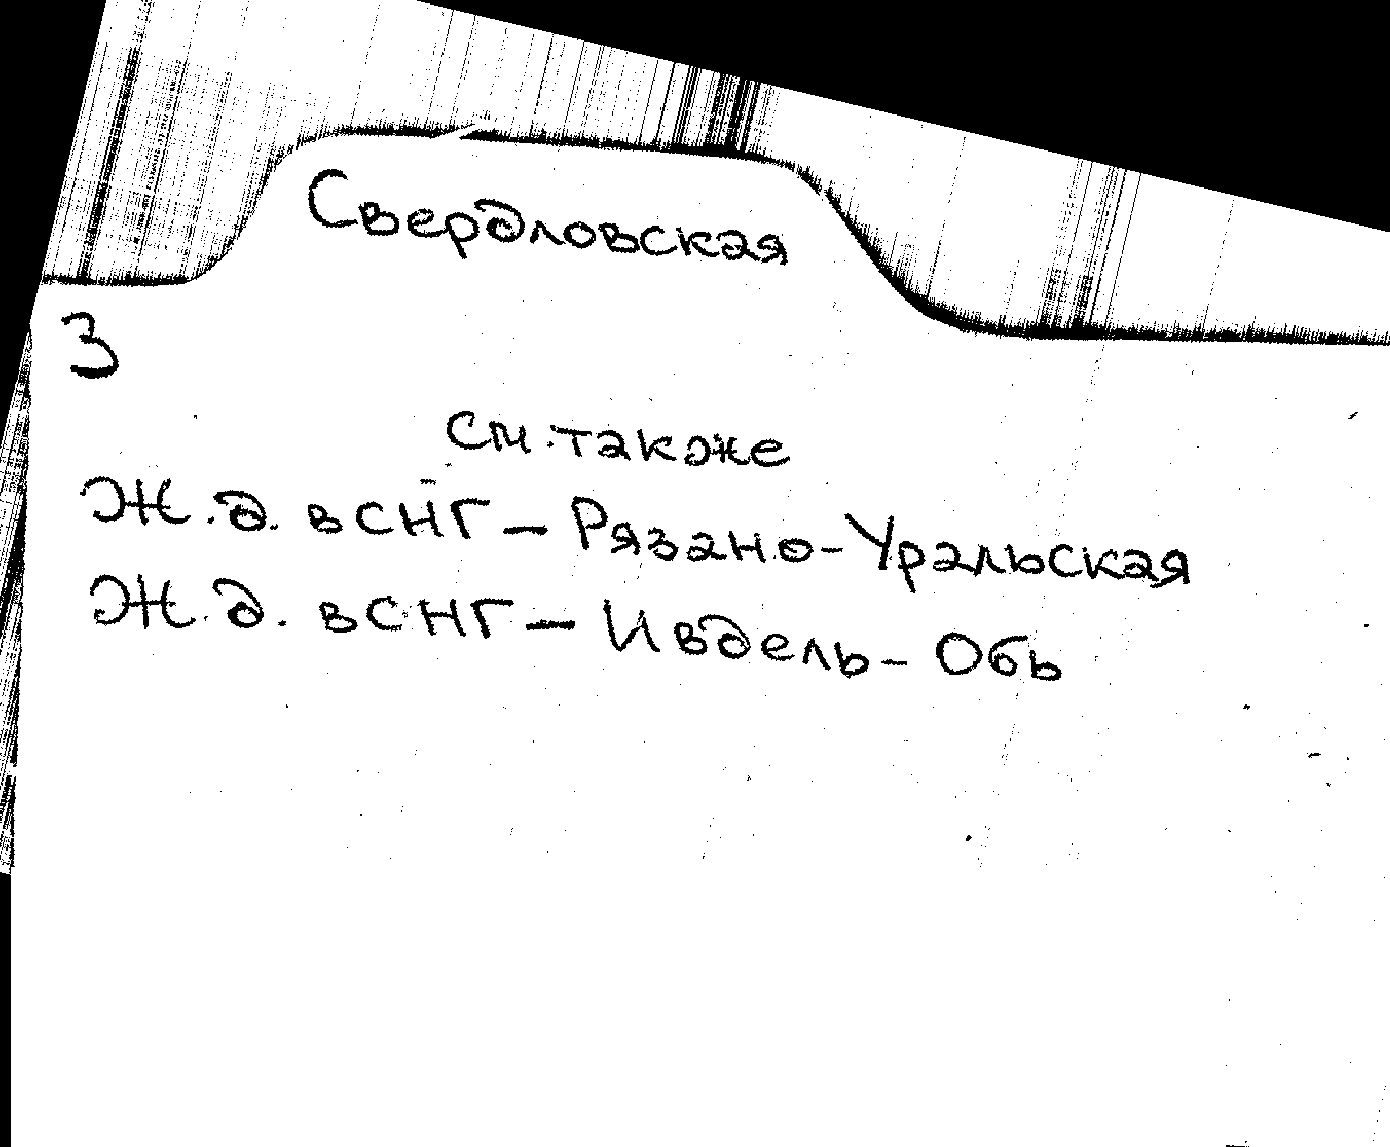 Свердловская
3
см. также
Ж.д. в СНГ – Рязано-Уральская
Ж.д. в СНГ – Ивдель - Обь